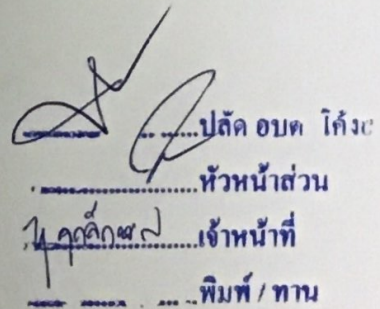 ปลัด อบต โค้ง
หัวหน้าส่วน
เจ้าหน้าที่
พิมพ์ / ทาน